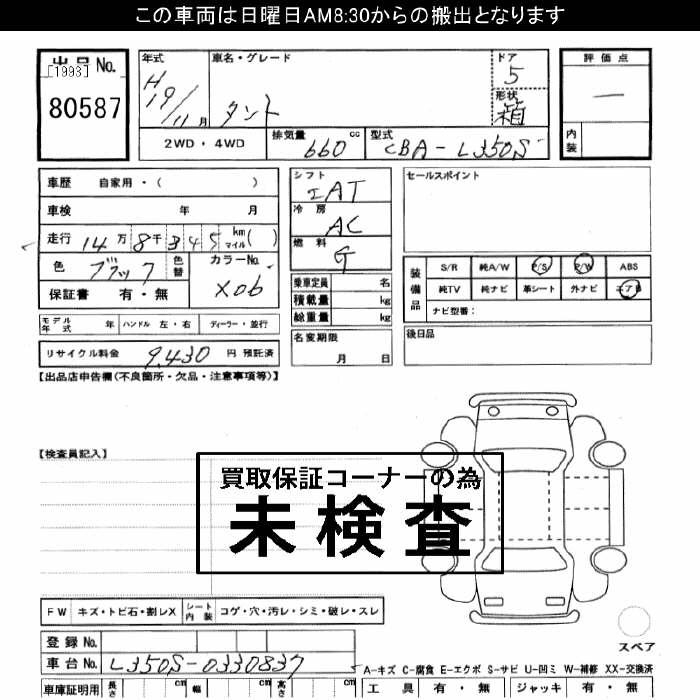 この車両は日曜日AM8:30からの搬出となります
出品No.
[1993]
80587
年式
H19/11月
車名・グレード
タント
ドア
5
形状
箱
2WD・4WD
排気量
660 cc
型式
CBA-L350S
評価点
―
内装
車歴 自家用・( )
車検 年 月
走行 14万8千345 km マイル( )
色 ブラック 色替
カラーNo.
X06
保証書 有・無
シフト
IAT
冷房
AC
燃料
G
乗車定員 名
積載量 kg
総重量 kg
セールスポイント
装備品
S/R 純A/W P/S P/W ABS
純TV 純ナビ 革シート 外ナビ エアB
ナビ型番:
モデル年式 年 ハンドル 左・右 ディーラー・並行
名変期限
月 日
後日品
リサイクル料金 9,430 円 預託済
【出品店申告欄(不良箇所・欠品・注意事項等)】
【検査員記入】
買取保証コーナーの為
未検査
FW キズ・トビ石・割レX シート内装 コゲ・穴・汚レ・シミ・破レ・スレ
スペア
登録No.
車台No. L350S-0330837
A-キズ C-腐食 E-エクボ S-サビ U-凹ミ W-補修 XX-交換済
車庫証明用 長さ cm 幅 cm 高さ cm
工具 有・無 ジャッキ 有・無